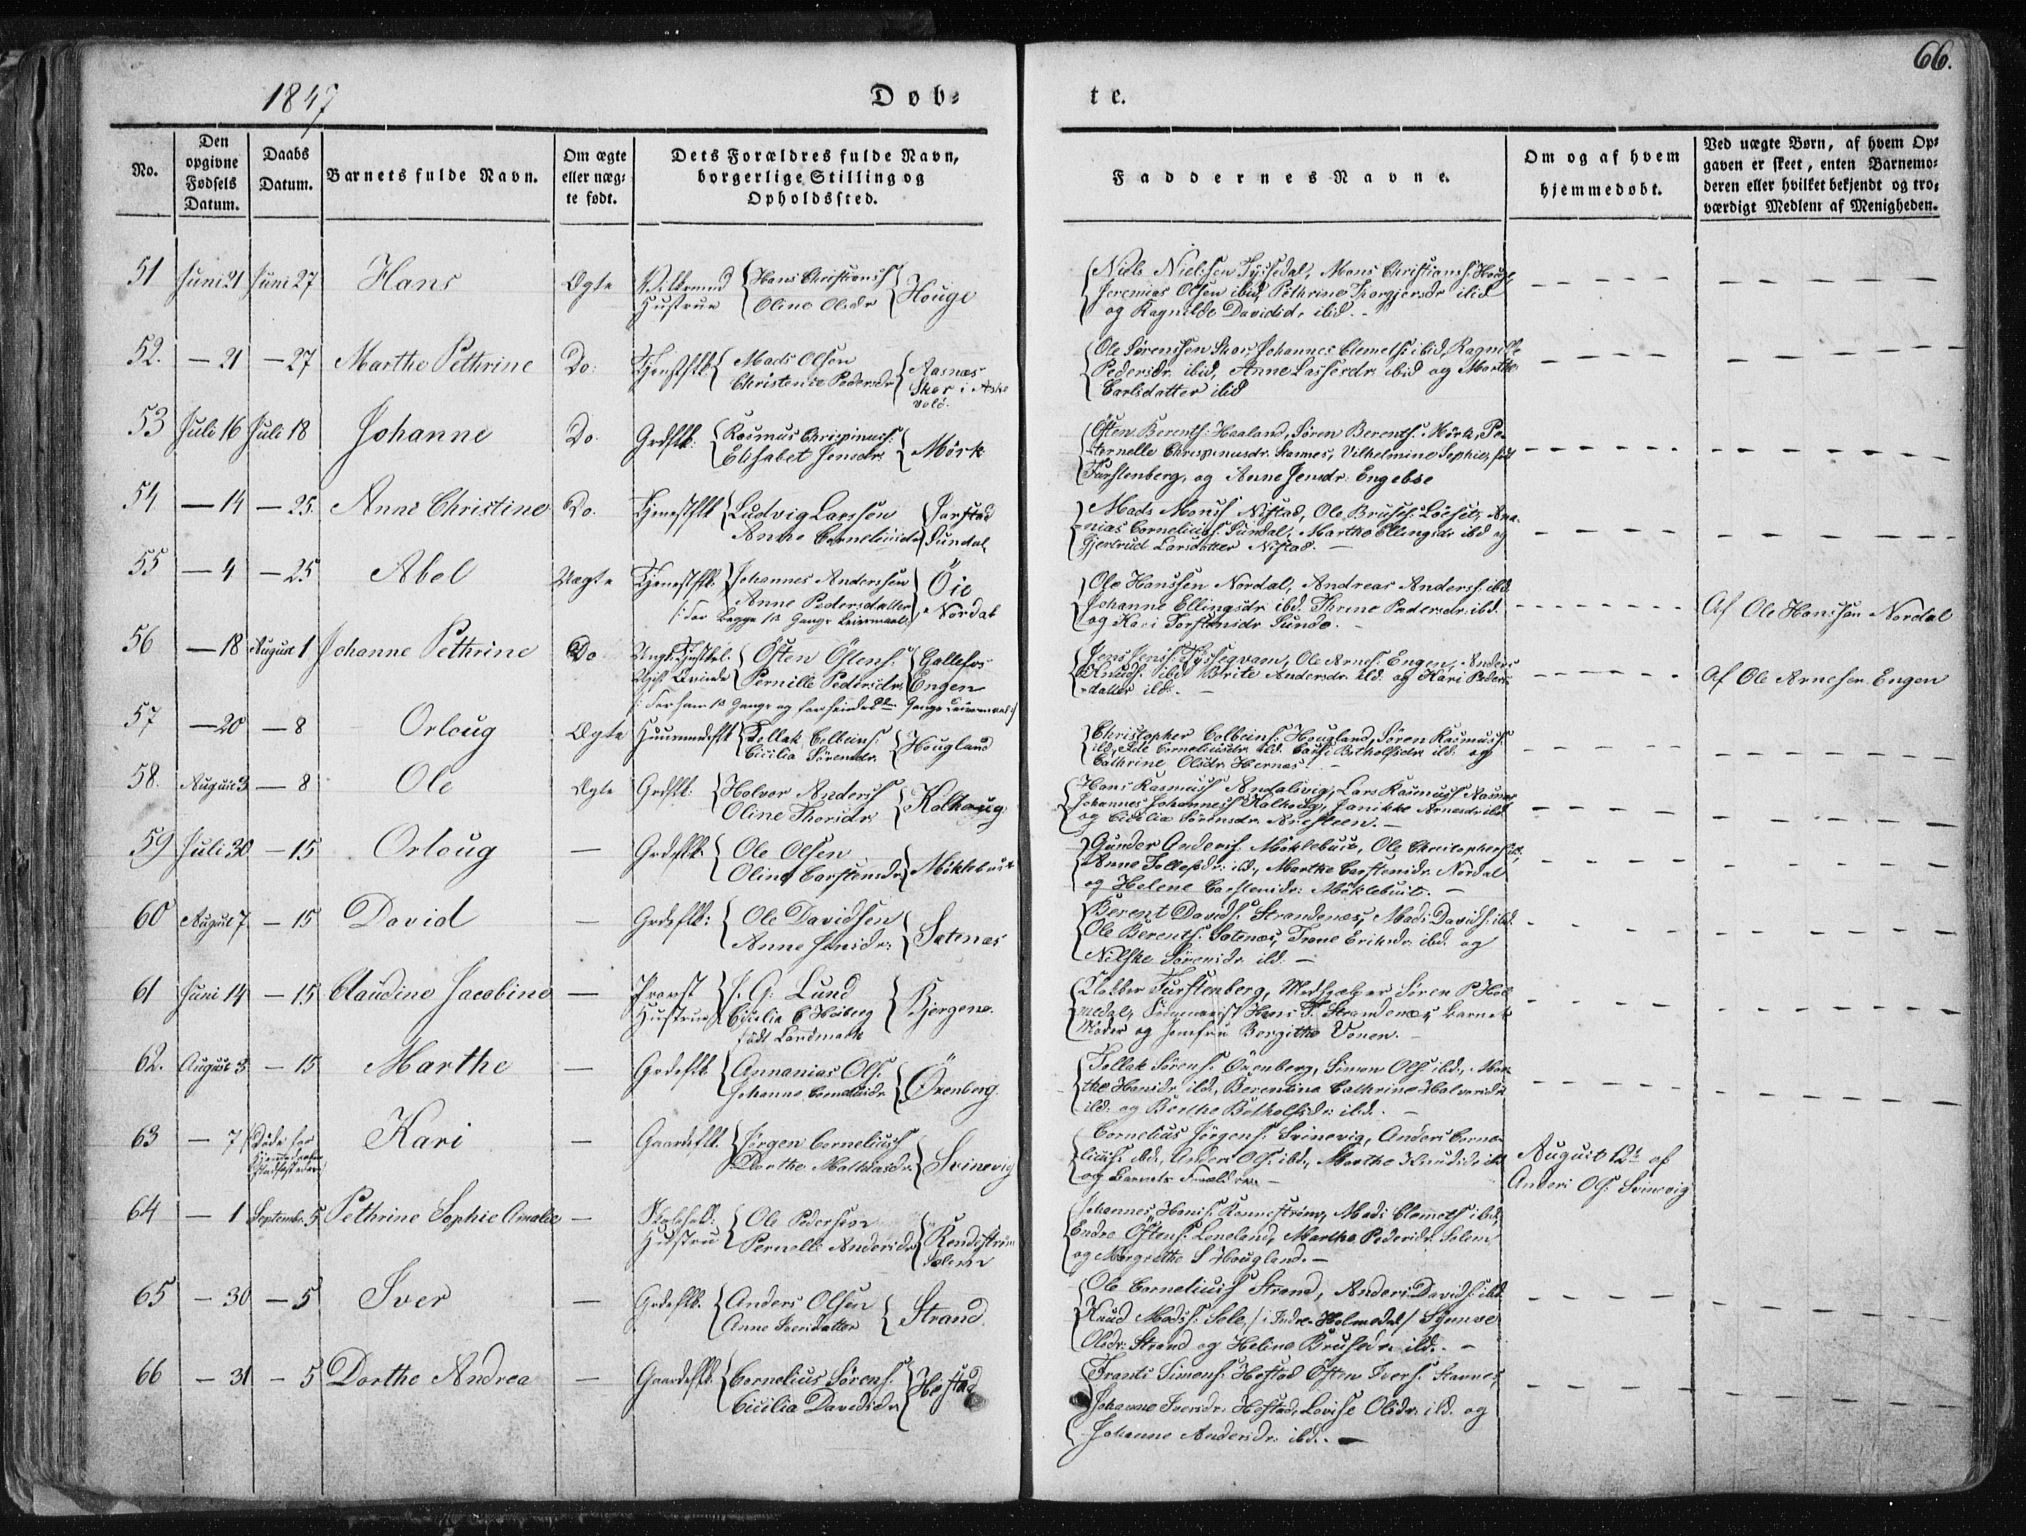 66.
1847
Døb-
te.
No.
Den opgivne Fødsels Datum.
Daabs Datum.
Barnets fulde Navn.
Om ægte eller uæg-te født.
Dets Forældres fulde Navn, borgerlige Stilling og Opholdssted.
Faddernes Navne.
Om og af hvem hjemmedøbt.
Ved uægte Børn, af hvem Op-gaven er skeet, enten Barnemo-deren eller hvilket bekjendt og tro-værdigt Medlem af Menigheden.
51 Juni 21 Juni 27 Hans Ægte Hustrue Hans Christians Oline Olsdr Houge
Niels Nielssen Tyssedal, Mons Christians. Houge
Jeremias Olsen ibid, Pethrine Thorgjersdr ibid
og Ragnilde Davidsdr ibid.
52. — 21 — 27 Marthe Pethrine Do: Tjenstflk. Mads Olsen Christense Pedersdr Aasnæs Skor i Aske vold.
Ole Sørenssen Skor, Johannes Clemets. ibid, Ragnille
Pedersdr ibid, Anne Lassesdr ibid og Marthe
Carlsdatter ibid
53 Juli 16 Juli 18 Johanne Do. Grdflk. Rasmus Chrispinus: Elisabet Jensdr Mörk
Östen Berents: Haaland, Sören Berents. Mörk, Pe-
ternelle Chrispinusdr. Stannes, Vilhelmine Sophie, født
Furstenberg, og Anne Jensdr. Engebøe
54. — 14 — 25. Anne Christine Do. Tjenestflk Ludvig Larssen Anne Corneliusdr Jarstad Sundal
Mads Monss Nistad, Ole Bruses: Löeset, Ana-
nias Cornelius. Sundal, Marthe Ellingsdr ibid og
Gjertrud Larsdatter Nistad. —
55 — 4 — 25 Abel Uægte Tjenestflk. Johannes Anderssen Anne Pedersdatter Öie Nordal
/: For Begge 1ste Gangs Leiermaal
Ole Hanssen Nordal, Andreas Anderss. ibd.
Johanne Ellingsdr ibd. Thrine Pedersdr: ibd.
og Kari Torstensdr Sunde.
Af Ole Hanssen Nordal
56 — 18 August 1 Johanne Pethrine Do Östen Östens. Pernille Pedersdr. Gallefos Engen
Jens Jenss. Tysseqvam, Ole Arnes. Engen, Anders
Knuds. ibd Brite Andersdr ibd. og Kari Peders-
datter ibd. —
Af Ole Arnesen Engen
57 — 20 — 8 Orloug Ægte Huusmandsflk Tollak Colbeins: Cicilia Sörensdr. Hougland
Christopher Colbeins: Hougland, Sören Rasmuss.
ibd, Sile Corneliusdr. ibd. Botholfsdr. ibd. og
Cathrine Olsdr. Hernæs. —
58. August 3 — 8 Ole Ægte Grdflk. Halvor Anders Oline Thorsdr: Kalhoug
Hans Rasmuss Andalsvig, Lars Rasmuss Aasnæs
Johannes Johanness Kalhoug, Janikke Arnesdr ibd
og Cicilia Sörensdr. Arsteen. —
59 Juli 30 — 15 Orloug — Grdeflk. Ole Olsen Oline Carstensdr Möklebust
Gunder Anders. Möklebust, Ole Christophers. ibd,
Anne Tollefsdr: ibd, Marthe Carstensdr Nordal
og Helene Carstensdr: Möklebust. —
60 August 7 — 15 David — Grdeflk: Ole Davidsen Anne Jensdr: Satenæs
Berent Davids: Strandenæs, Mads Davids: ibd.
Ole Berents. Satenæs, Trane Eriksdr. ibd. og
Nilske Sörensdr. ibd. —
61 Juni 14 — 15 Claudine Jacobine — Provst J. G. Lund Hustrue Cicelia C Høiberg født Landmark Bjergene.
Klokker Furstenberg, Medhjælper Sören P Hol-
medal, Hans T. Strandenæs, Barnets
Moder og Jomfru Bergithe Vonen. —
62. August 3 — 15 Marthe — Grdeflk. Annanias Ols. Johanne Corneliusdr Öxenberg.
Tollak Sörens. Öxenberg, Simon Ols. ibd., Mar-
the Hansdr ibd, Berentine Cathrine Halvorsdr
ibd. og Berthe Botholfsdr. ibd. —
63 — 7 Kari — Gaardeflk. Jørgen Cornelius Dorthe Mathiasdr. Svinevig
Cornelius Jörgens: Svinevig, Anders Corne-
lius: ibd., Anders Ols: ibd., Marthe Knudsdr ibd
og Barnets Forældre —
August 12te af
Anders Ols: Svinevig
64 — 1 Septembr. 5 Pethrine Sophie Amalie — Skolehold: Hustrue Ole Pedersen Pernelle Andersdr Rendestrøm
Johannes Hans: Rennestrøm, Mads Clemets. ibd,
Endre Östens: Leneland, Marthe Pedersdr. Solem
og Margrethe S Hougland. —
65 — 30 — 5 Iver — Grdeflk. Anders Olsen Anne Iversdatter Strand
Ole Corneliuss Strand, Anders Davids. ibd.
Knud Madss. Sele, /: Indre Holmedal/ Synneve
Olsdr. Strand og Heline Brusedr. ibd. —
66 — 31 — 5 Dorthe Andrea — Gaardeflk. Cornelius Sörens. Cicilia Davidsdr. Hestad
Frants Simons: Hestad, Östen Ivers: Stannes,
Johanne Iversdr. Hestad, Lovise Olsdr. ibd. og
Johanne Andersdr. ibd. —